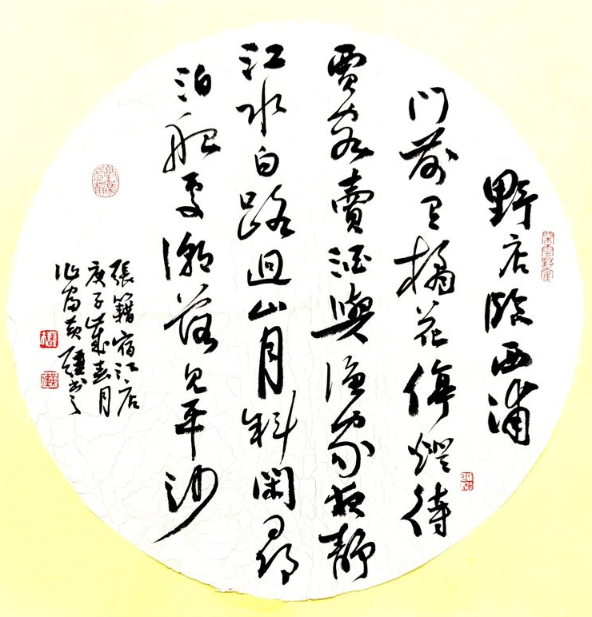 野店臨西浦
门前有橘花停燈待
賈客賣酒與漁家夜靜
江水白路迴山月斜閑尋
泊船處潮落見平沙
張籍宿江店
庚子歲春月
书